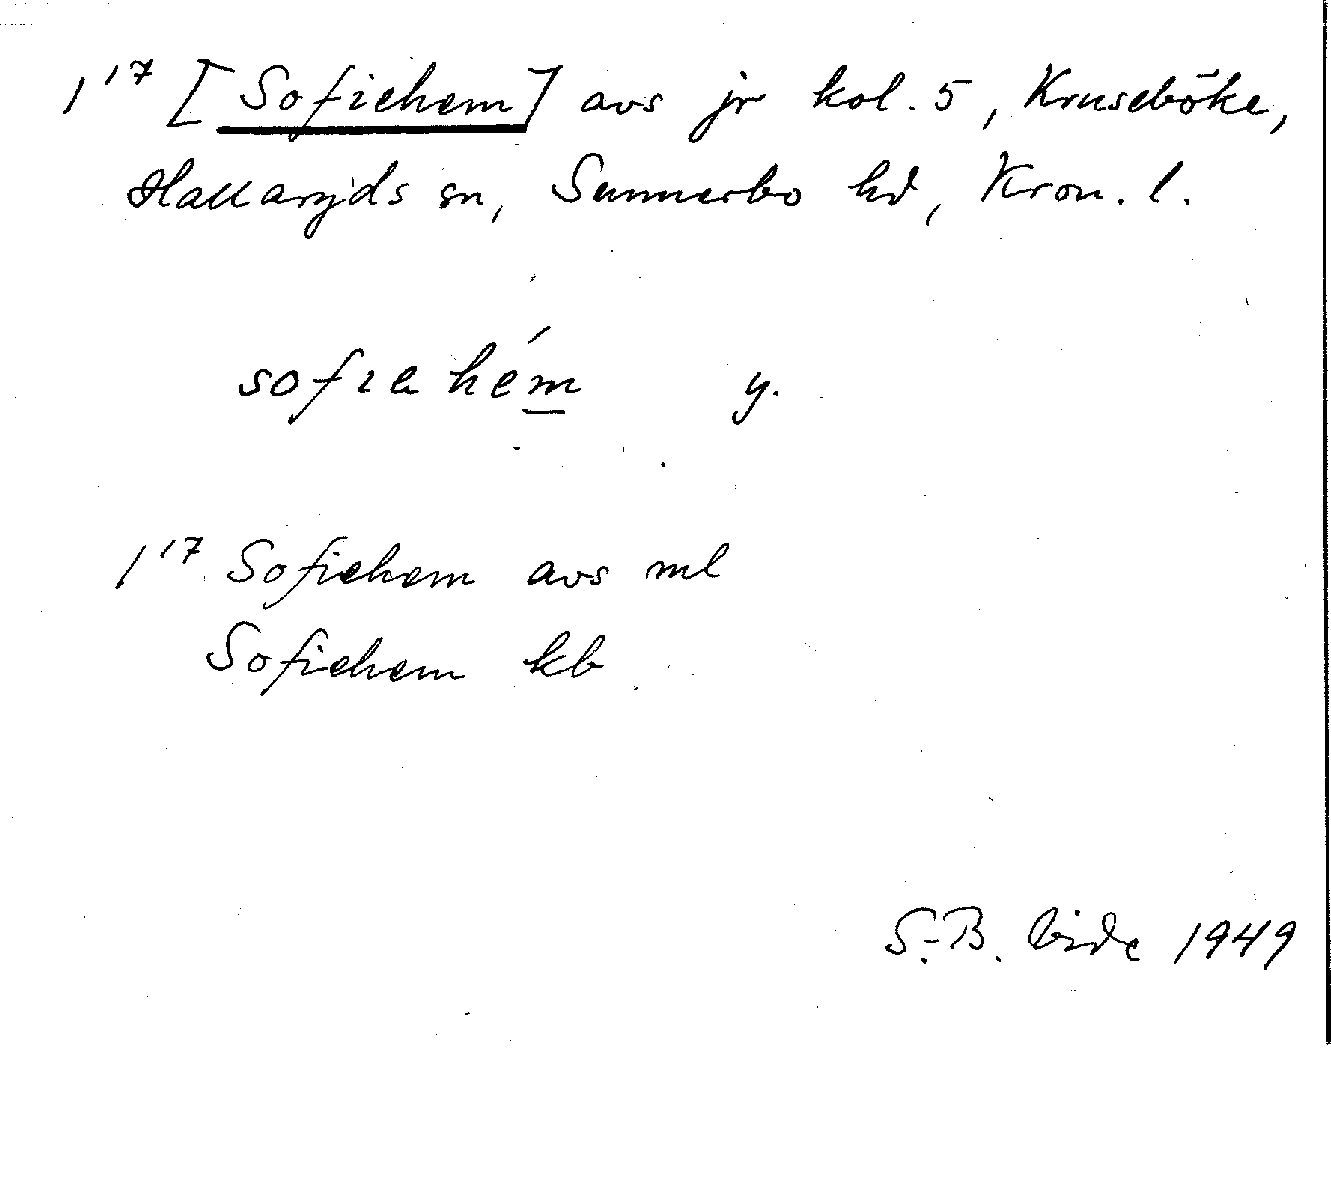 1¹⁷ [Sofiehem] avs jr kol. 5, Kruseböke,
Hallaryds sn, Sunnerbo hd, Kron. l.
sofıahém y.
1¹⁷ Sofiehem avs ml
Sofiehem kb
S.-B. 1949